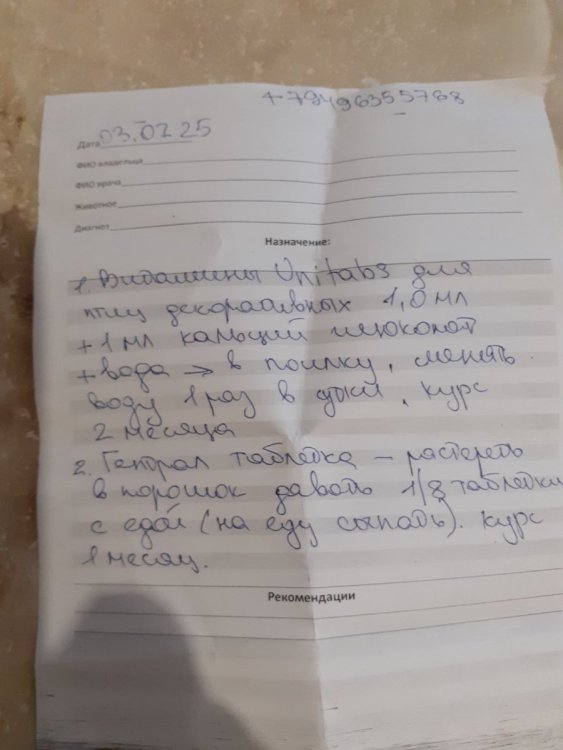 +79496355768
Дата 03.02.25
ФИО владельца
ФИО врача
Животное
Диагноз
Назначение:
1. Витамины Unitabs для
птиц декоративных 1,0 мл
+ 1 мл кальций глюконат
+ вода → в поилку, менять
воду 1 раз в сутки, курс
2 месяца
2. Гептрал таблетка – растереть
в порошок давать 1/8 таблетки
с едой (на еду сыпать). Курс
1 месяц.
Рекомендации